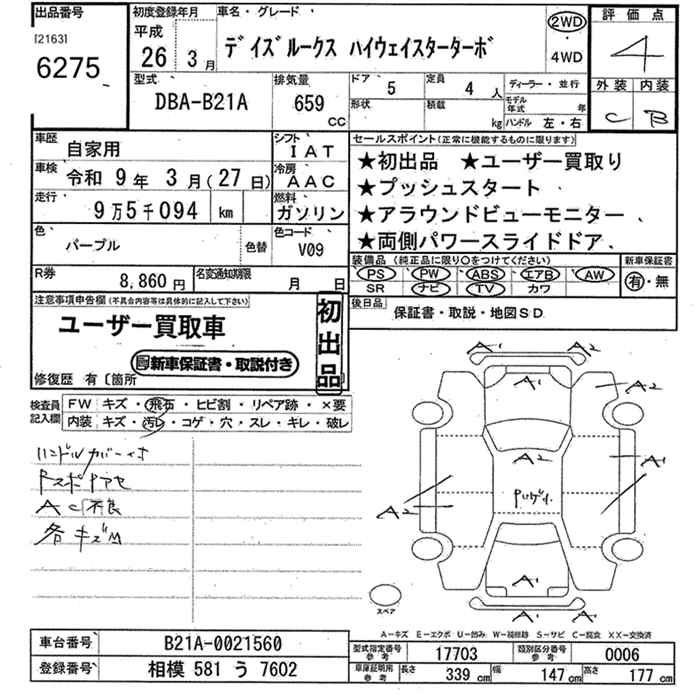 出品番号
[2163]
6275
初度登録年月
平成
26年 3月
車名・グレード
デイズルークス ハイウェイスターターボ
2WD
・
4WD
評価点
4
外装 内装
C B
型式
DBA-B21A
排気量
659
CC
ドア 5
定員 4人
形状
積載 kg
ディーラー・並行
モデル年式 年
ハンドル 左・右
車歴 自家用
シフト IAT
車検 令和 9年 3月(27日)
冷房 AAC
走行 9万5千094 km
燃料 ガソリン
色 パープル 色替
色コード V09
R券 8,860円
名変通知期限 月 日
セールスポイント(正常に機能するものに限ります)
★初出品 ★ユーザー買取り
★プッシュスタート
★アラウンドビューモニター
★両側パワースライドドア
装備品(純正品に限り○をつけてください)
PS PW ABS エアB AW
SR ナビ TV カワ
新車保証書
有・無
後日品
保証書・取説・地図SD
注意事項申告欄(不具合内容等は具体的に記入して下さい)
ユーザー買取車
新車保証書・取説付き
初出品
修復歴 有〔箇所
検査員記入欄
FW キズ・飛石・ヒビ割・リペア跡・×要
内装 キズ・汚レ・コゲ・穴・スレ・キレ・破レ
ハンドルカバー付
AC不良
各キズM
A1 A2
A1
A2
A2
A1
A2
A1
A1 A1
スペア
A-キズ E-エクボ U-凹み W-補修跡 S-サビ C-腐食 XX-交換済
車台番号 B21A-0021560
登録番号 相模 581 う 7602
型式指定番号 参考 17703
類別区分番号 参考 0006
車庫証明用 参考 長さ 339cm 幅 147cm 高さ 177cm